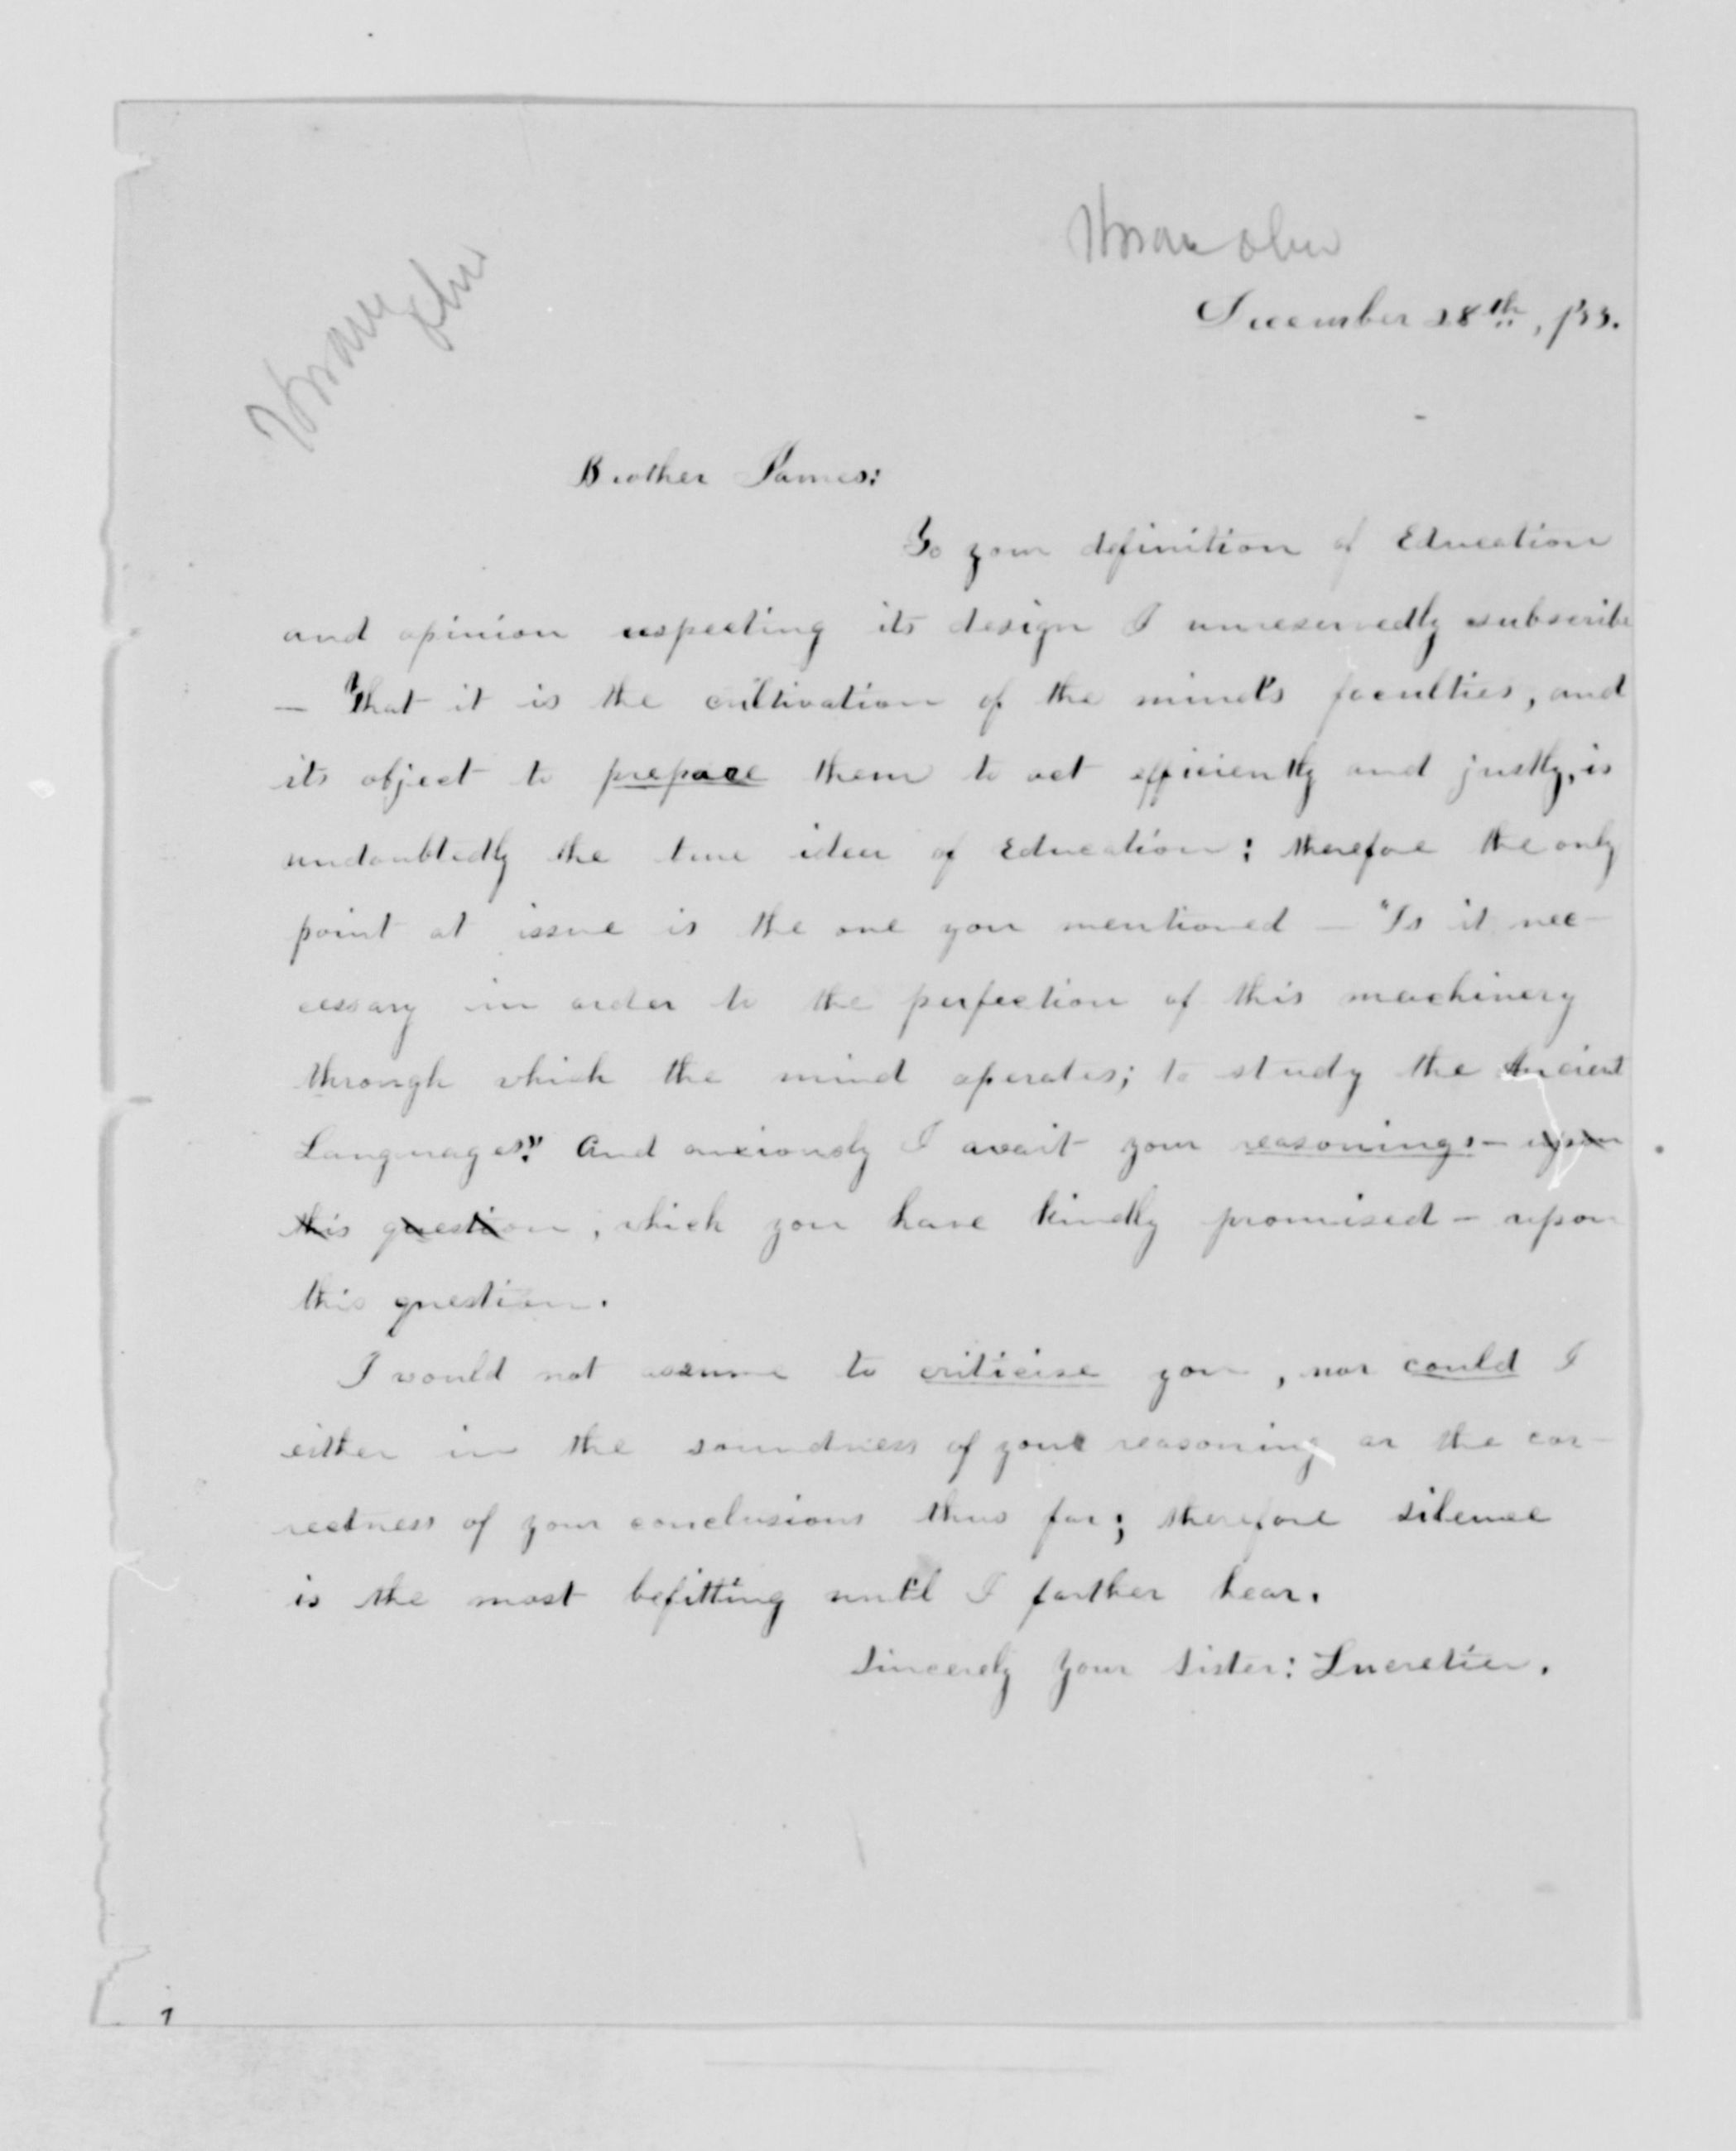 Hiram Ohio
Hiram Ohio
December 28th, /53.
Brother James:
To your definition of Education
and opinion respecting its design I unreservedly subscribe
— That it is the cultivation of the mind's faculties, and
its object to prepare them to act efficiently and justly, is
undoubtedly the true idea of Education: therefore the only
point at issue is the one you mentioned — "Is it nec-
cessary in order to the perfection of this machinery
through which the mind operates; to study the Ancient
Languages"? And anxiously I await your reasonings — upon
this question, which you have kindly promised — upon
this question.
I would not assume to criticise you, nor could I
either in the soundness of your reasoning or the cor-
rectness of your conclusions thus far; therefore silence
is the most befitting until I farther hear.
Sincerely your sister: Lucretia.
1